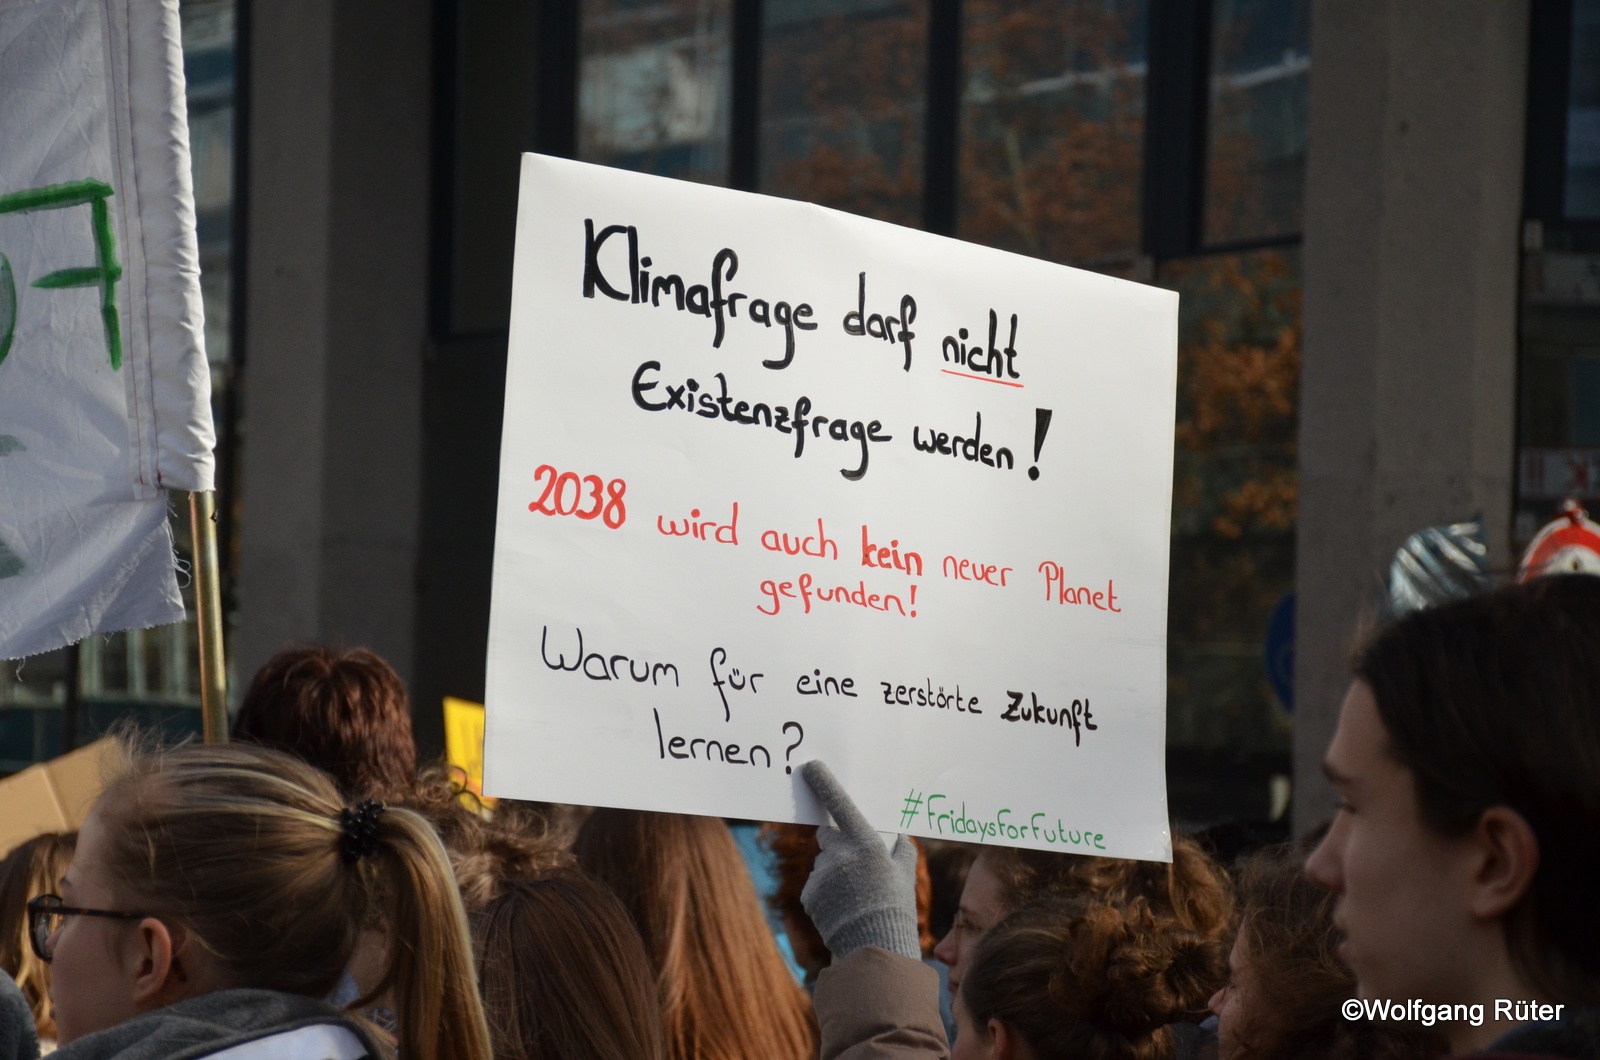 Klimafrage darf nicht
Existenzfrage werden!
2038 wird auch kein neuer Planet
gefunden!
Warum für eine zerstörte Zukunft
lernen?
#FridaysForFuture
©Wolfgang Rüter